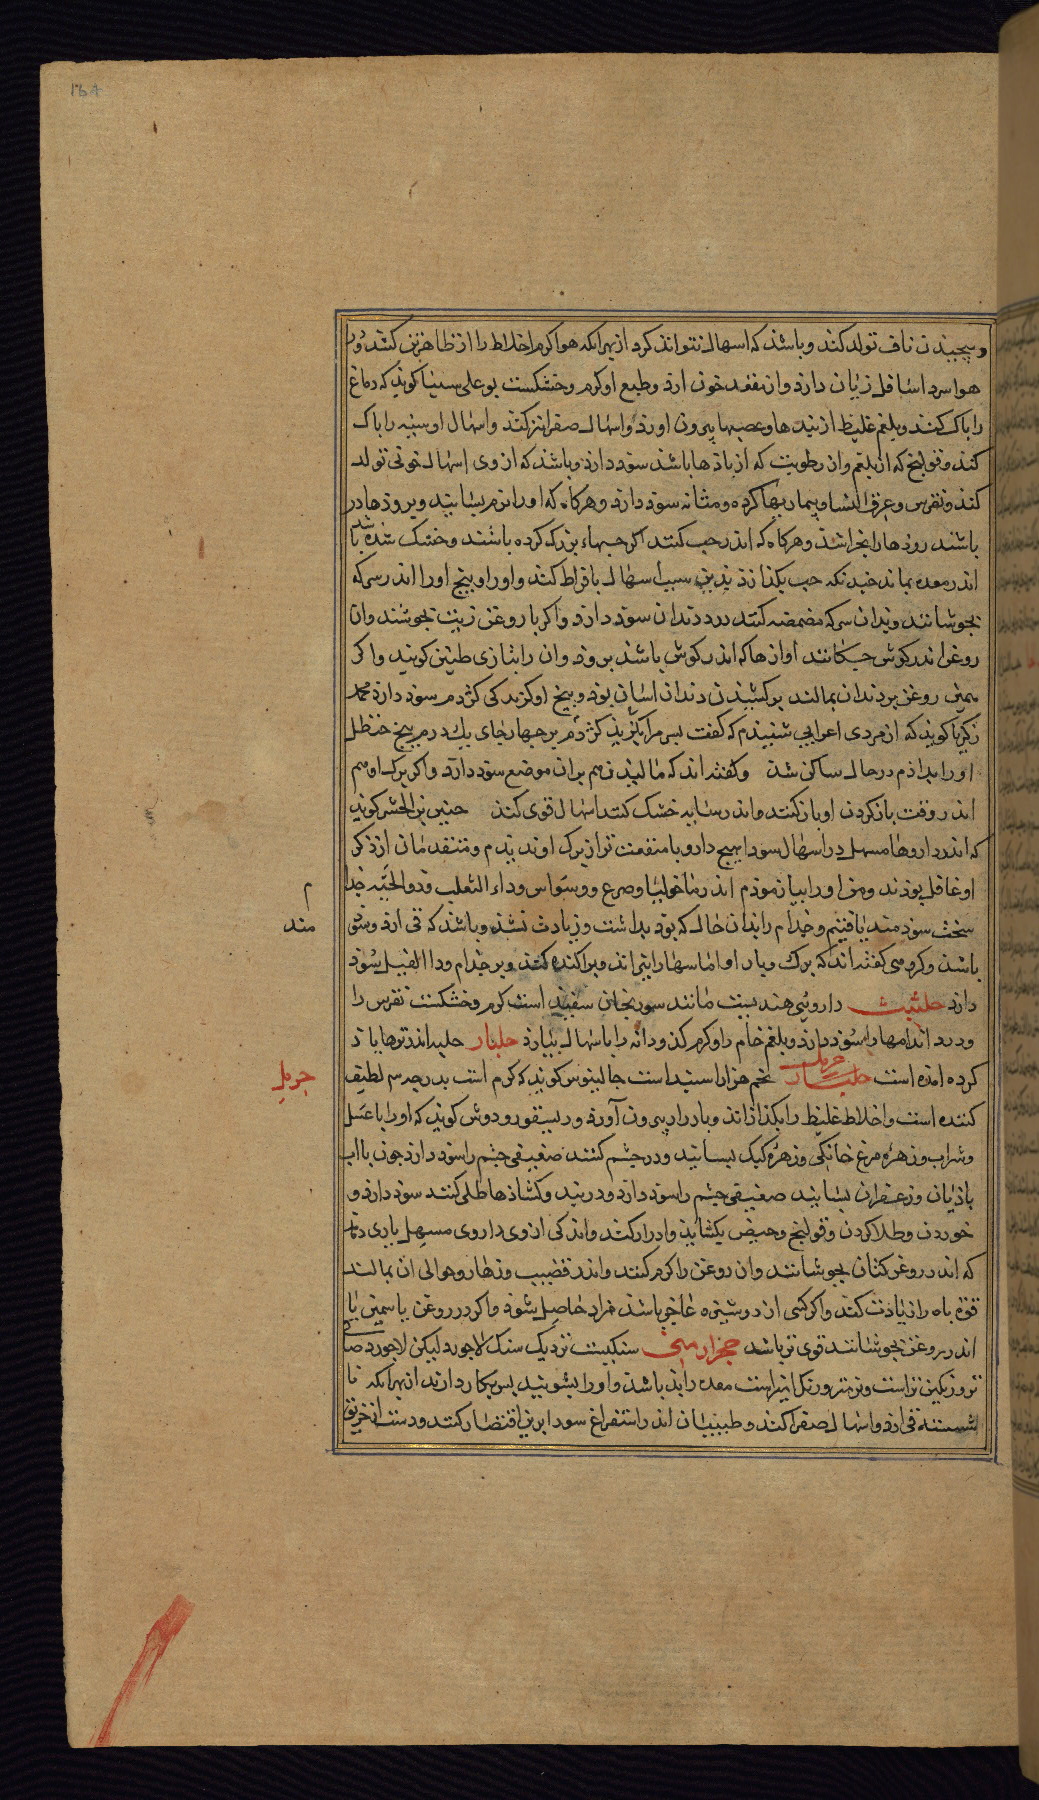 ۱۶۸
و پیچیدن ناف تولد کند و باشد که اسهال نتواند کرد از بهر انکه هوا کرم اخلاط را از ظاهر کشد و در
هوا سرد اسافل زیان دارد و از مقعد خون ارد و طبع او کرم و خشکست بو علی سینا کوید که دماغ
را باک کند و بلغم غلیظ از بندها و عصبها بیرون اورد و اسهال صفرا نیز کند و اسهال او سینه را باک
کند و قولنج که از بلغم و از رطوبت که از بادها باشد سود دارد و باشد که از وی اسهال خونی تولد
کند و نقرس و عرق النسا و بیماریها کرده و مثانه سود دارد و هرکاه که او را نرم بسایند و بر روذها در
باشد روذها را بخراشد و هرکاه که اندر حب کنند اکر حبهاء بزرک کرده باشند و خشک شده باشد
اندر معده بماند جندانکه حب بکدازد بدین سبب اسهال بافراط کند و او را و بیخ او را اندر سرکه
بجوشانند و بدان سرکه مضمضه کنند درد دندان سود دارد و اکر با روغن زیت بجوشند و ان
روغن اندر کوش جکانند اوازها که اندر کوش باشد ببرد و ان را بتازی طنین کویند و اکر
همین روغن بر دندان بمالند برکشیدن دندان اسان بود و بیخ او کزیدکی کژدم سود دارد محمد
زکریا کوید که از مردی اعرابی شنیدم که کفت بسر مرا بکزید کژدم بر جهار جای یک درم بیخ حنظل
او را بدادم در حال ساکن شد و کفته اند که مالیدن هم بران موضع سود دارد و اکر برک او هم
اندر وقت باز کردن او باز کنند و اندر سایه خشک کنند اسهال قوی کند حنین بن الحشر کوید
که اندر داروها مسهل در اسهال سودا هیچ دارو با منفعت تر از برک او ندیدم و متقدمان از ذکر
او غافل بودند و من او را بیازمودم اندر مالیخولیا و صرع و وسواس و داء الثعلب و داء الحیه جذام
سخت سود مند یافتم و جذام را بدان حال که بود بداشت و زیادت نشد و باشد که قی ارد و متی
باشد و کروهی کفته اند که برک و بار او اماسها را بنشاند و براکنده کند و بر جذام و داء الفیل سود
دارد حلتیت داروئی هندیست مانند سورنجان سفید است کرم و خشکست نقرس را
و درد اندامها را سود دارد و بلغم خام را و کرم کدو دانه را باسهال بیارد حلبار حلبه اندر توها یاد
کرده امده است حلبار خربل تخم هزار اسبند است جالینوس کوید کرم است بدرجه سم لطیف
کننده است و اخلاط غلیظ را بکدازاند و باد را بیرون آورد و دیسقوریدوس کوید که او را با عسل
و شراب و زهره مرغ خانکی و زهره کبک بسایند و در جشم کشند ضعیفی جشم را سود دارد جون با اب
بادیان و زعفران بسایند ضعیفی جشم را سود دارد و دربند و کشادها طلی کنند سود دارد و
خوردن و طلا کردن و قولنج و حیض بکشاید و ادرار کند و اندکی از وی داروی مسهل یاری دهد
که اندر روغن کتان بجوشانند و ان روغن را کرم کنند و اندر قضیب و زهار و حوالی ان بمالند
قوة باه را زیادت کند و اکر کسی از دوشیزه عاجز باشد مراد حاصل شود و اکر در روغن یاسمین یا
اندر روغن بجوشانند قوی تر باشد حجر ارمنی سنکیست نزدیک سنک لاجورد لیکن لاجورد صافی
تر و رنکین تر است و نرم تر و رنک او تیراست معده را بد باشد و او را بشویند بس بکار دارند از بهر انکه نا
شسته قی ارد و اسهال صفرا کند و طبیبان اندر استفراغ سودا برین اقتصار کنند و دست از خربق
م
مند
خربل